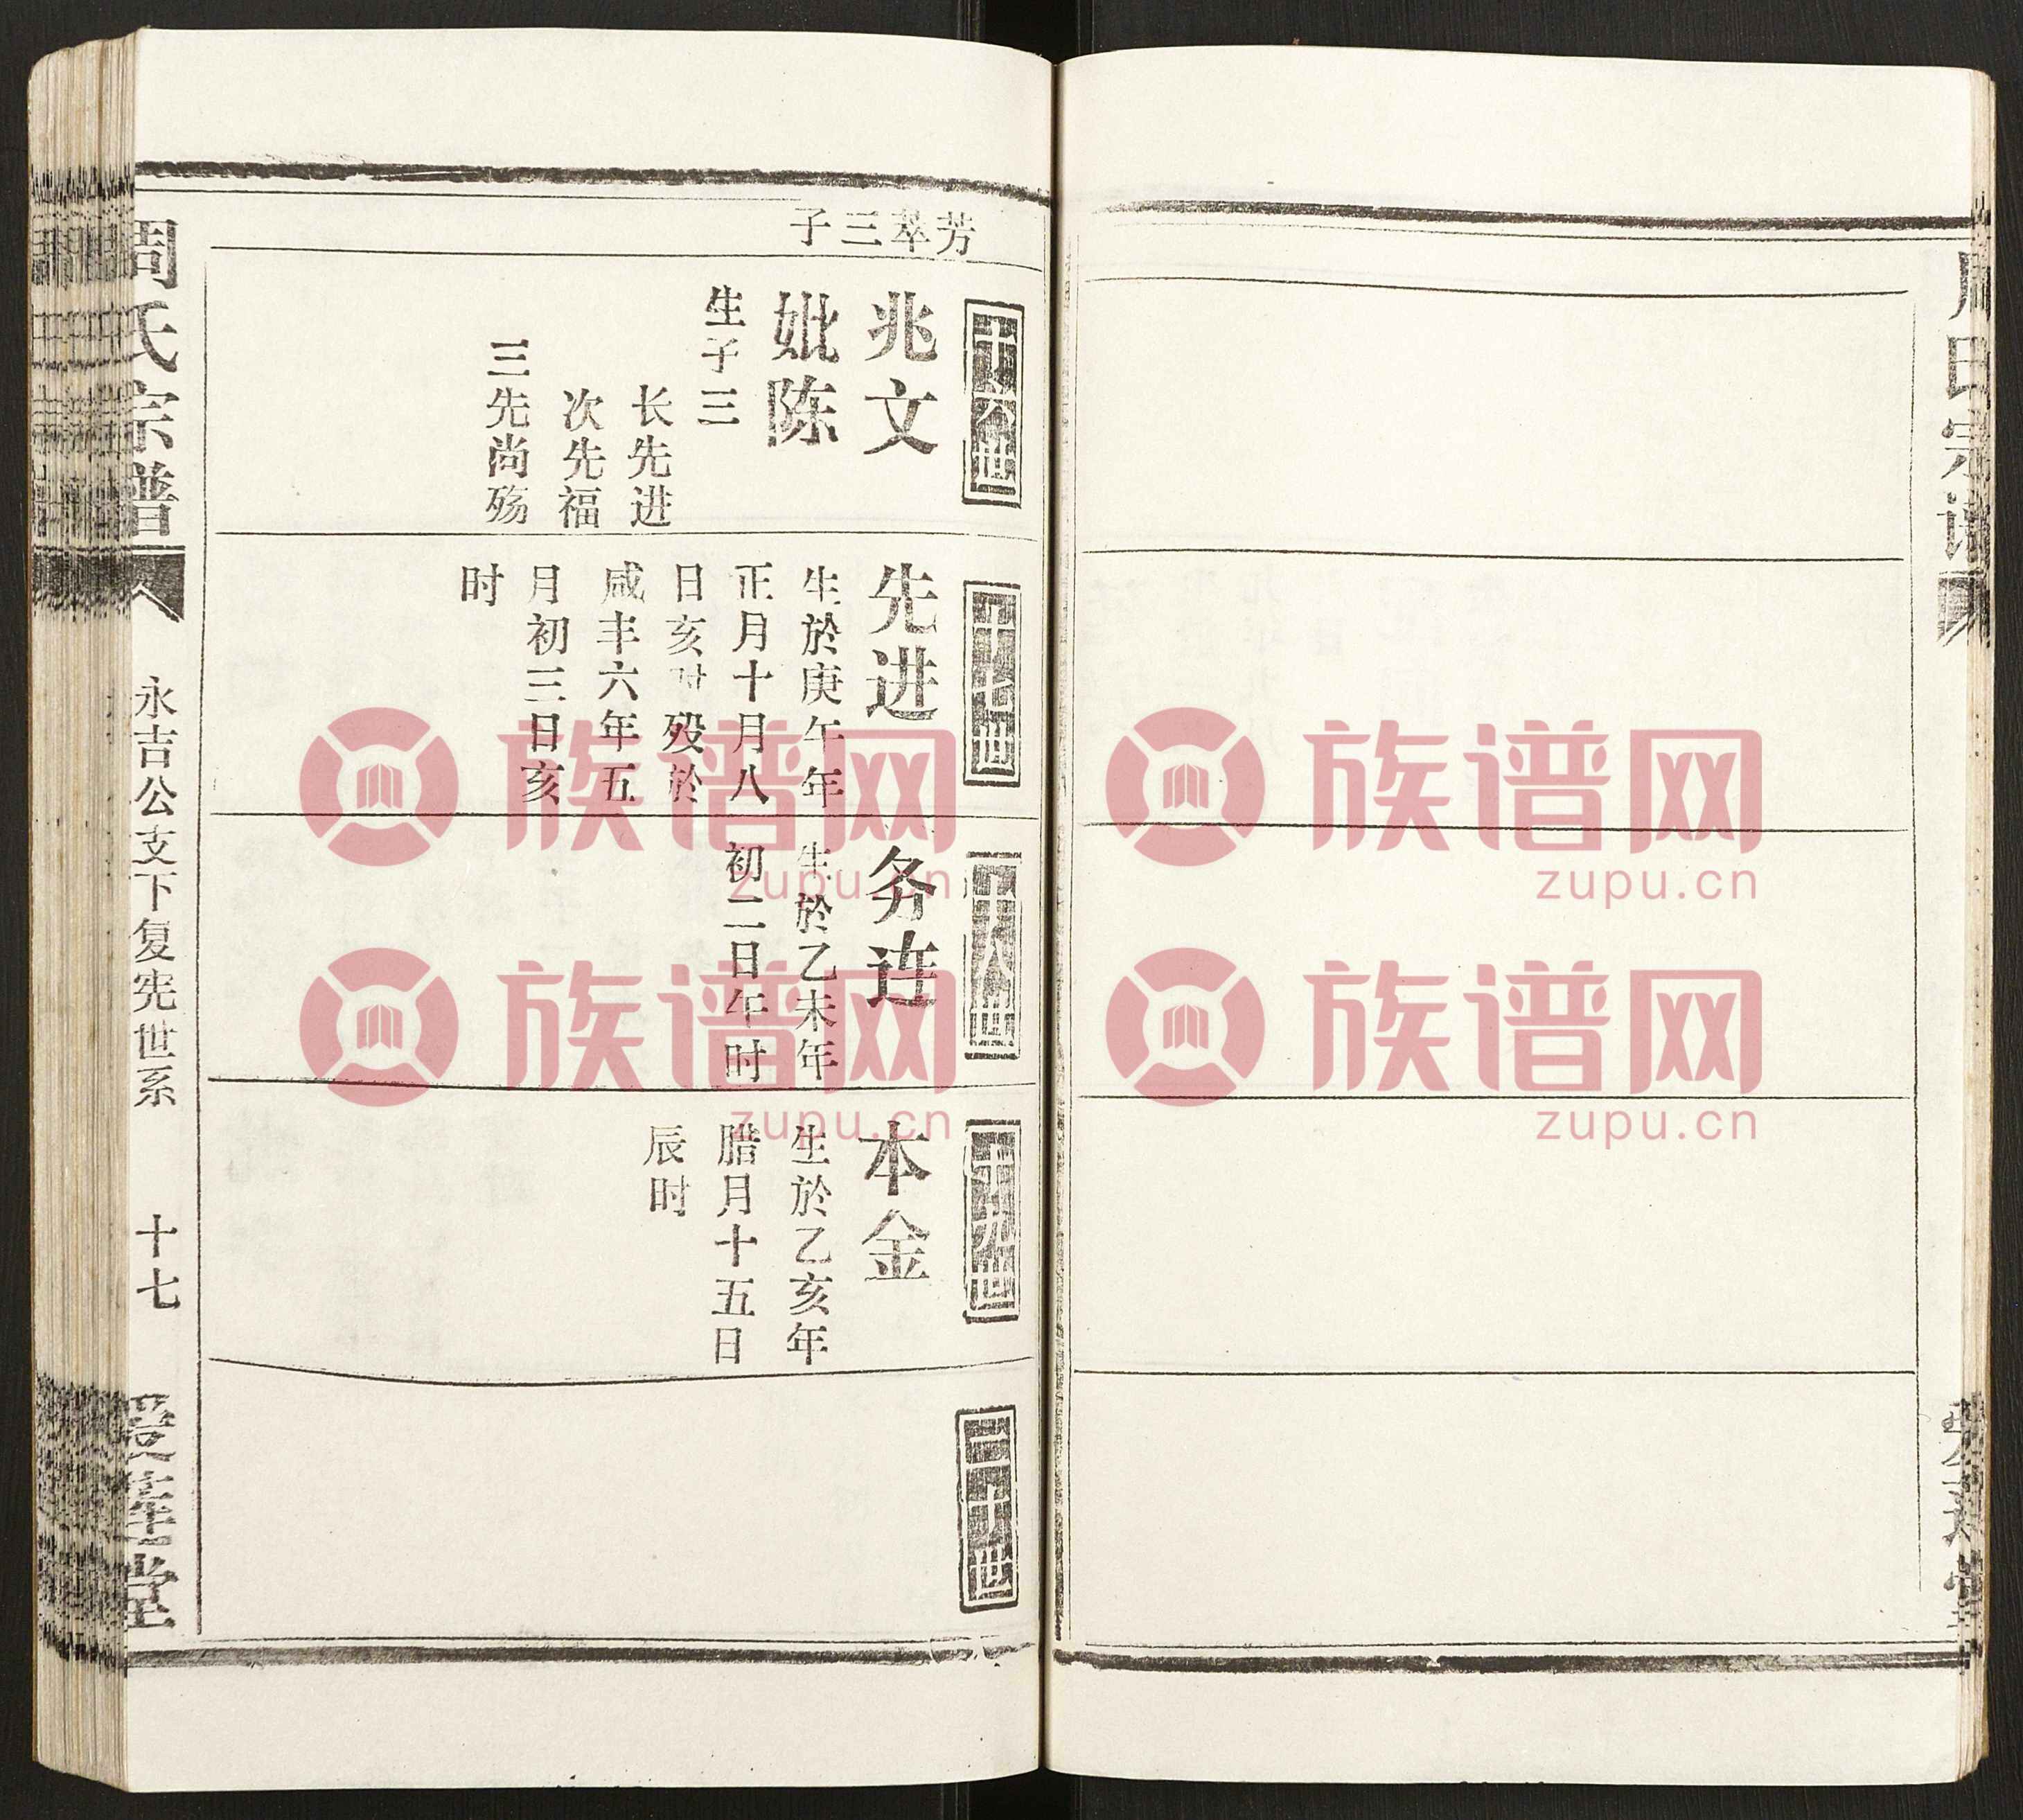 周氏宗谱
芳萃三子
十六世
兆文
妣陈
生子三
长先进
次先福
三先尚殇
十七世
先进
生於庚午年
正月十月八
日亥时殁於
咸丰六年五
月初三日亥
时
十八世
务连
生於乙未年
初二日午时
十九世
本金
生於乙亥年
腊月十五日
辰时
二十世
周氏宗谱
永吉公支下复宪世系
十七
爱莲堂
族谱网
zupu.cn
族谱网
zupu.cn
族谱网
zupu.cn
族谱网
zupu.cn